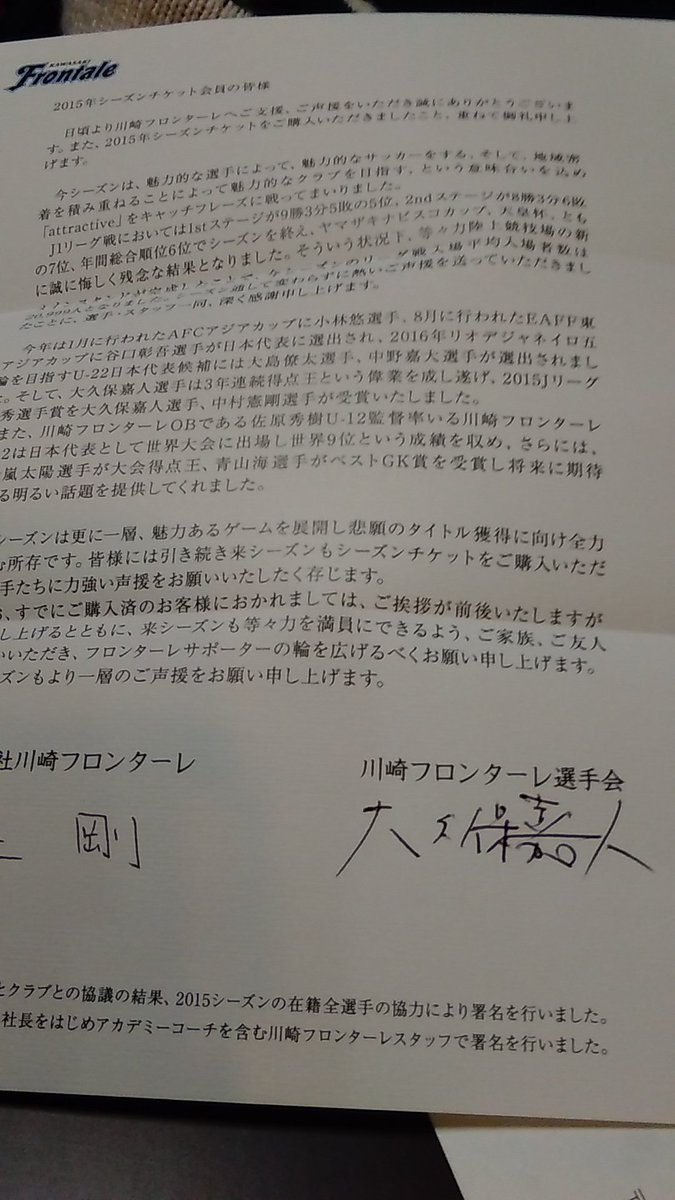 KAWASAKI
Frontale
2015年シーズンチケット会員の皆様
日頃より川崎フロンターレへご支援、ご声援をいただき誠にありがとうございま
す。また、2015年シーズンチケットをご購入いただきましたこと、重ねて御礼申し上
げます。
今シーズンは、魅力的な選手によって、魅力的なサッカーをする、そして、地域密
着を積み重ねることによって魅力的なクラブを目指す、という意味合いを込め
「attractive」をキャッチフレーズに戦ってまいりました。
J1リーグ戦においては1stステージが9勝3分5敗の5位、2ndステージが8勝3分6敗
の7位、年間総合順位6位でシーズンを終え、ヤマザキナビスコカップ、天皇杯、とも
に誠に悔しく残念な結果となりました。そういう状況下、等々力陸上競技場の新
メインスタンドが完成したことで、今シーズンのリーグ戦入場平均入場者数は
20,999人となりました。シーズン通して変わらずに熱いご声援を送っていただきまし
たことに、選手・スタッフ一同、深く感謝申し上げます。
今年は1月に行われたAFCアジアカップに小林悠選手、8月に行われたEAFF東
アジアカップに谷口彰吾選手が日本代表に選出され、2016年リオデジャネイロ五
輪を目指すU-22日本代表候補には大島僚太選手、中野嘉大選手が選出されまし
た。そして、大久保嘉人選手は3年連続得点王という偉業を成し遂げ、2015Jリーグ
秀選手賞を大久保嘉人選手、中村憲剛選手が受賞いたしました。
また、川崎フロンターレOBである佐原秀樹U-12監督率いる川崎フロンターレ
2は日本代表として世界大会に出場し世界9位という成績を収め、さらには、
嵐太陽選手が大会得点王、青山海選手がベストGK賞を受賞し将来に期待
る明るい話題を提供してくれました。
シーズンは更に一層、魅力あるゲームを展開し悲願のタイトル獲得に向け全力
む所存です。皆様には引き続き来シーズンもシーズンチケットをご購入いただ
手たちに力強い声援をお願いいたしたく存じます。
お、すでにご購入済のお客様におかれましては、ご挨拶が前後いたしますが
し上げるとともに、来シーズンも等々力を満員にできるよう、ご家族、ご友人
いいただき、フロンターレサポーターの輪を広げるべくお願い申し上げます。
ズンもより一層のご声援をお願い申し上げます。
社川崎フロンターレ
川崎フロンターレ選手会
剛
大久保嘉人
とクラブとの協議の結果、2015シーズンの在籍全選手の協力により署名を行いました。
社長をはじめアカデミーコーチを含む川崎フロンターレスタッフで署名を行いました。